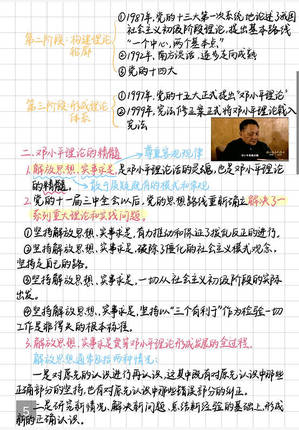 第二阶段:构建理论轮廓
①1987年,党的十三大第一次系统地论述了我国
社会主义初级阶段理论,提出基本路线
"一个中心,两个基本点"
②1992年,南方谈话,逐步走向成熟
③党的十四大
第三阶段:形成理论体系
①1997年,党的十五大正式提出"邓小平理论"
②1999年,宪法修正案正式将邓小平理论载入
宪法
二.邓小平理论的精髓
尊重客观规律
1.解放思想、实事求是,是邓小平理论活的灵魂,也是邓小平理论
的精髓。
敢于质疑既有的模式和常规
2.党的十一届三中全会以后,党的思想路线重新确立解决了一
系列重大理论和实践问题。
①坚持解放思想、实事求是,有力推动和保证了拨乱反正的进行。
②坚持解放思想、实事求是,破除了僵化的社会主义模式观念,
坚持走自己的路。
③坚持解放思想、实事求是,一切从社会主义初级阶段的实际
出发。
④坚持解放思想、实事求是,坚持以"三个有利于"作为检验一切
工作是非得失的根本标准。
3.解放思想、实事求是贯穿邓小平理论形成发展的全过程。
解放思想通常包括两种情况:
一是对原先的认识进行再认识,这其中既有对原先认识中那些
正确部分的坚持,也有对原先认识中那些错误部分的纠正。
二是研究新情况、解决新问题、总结新经验的基础上,形成
新的正确认识。
5